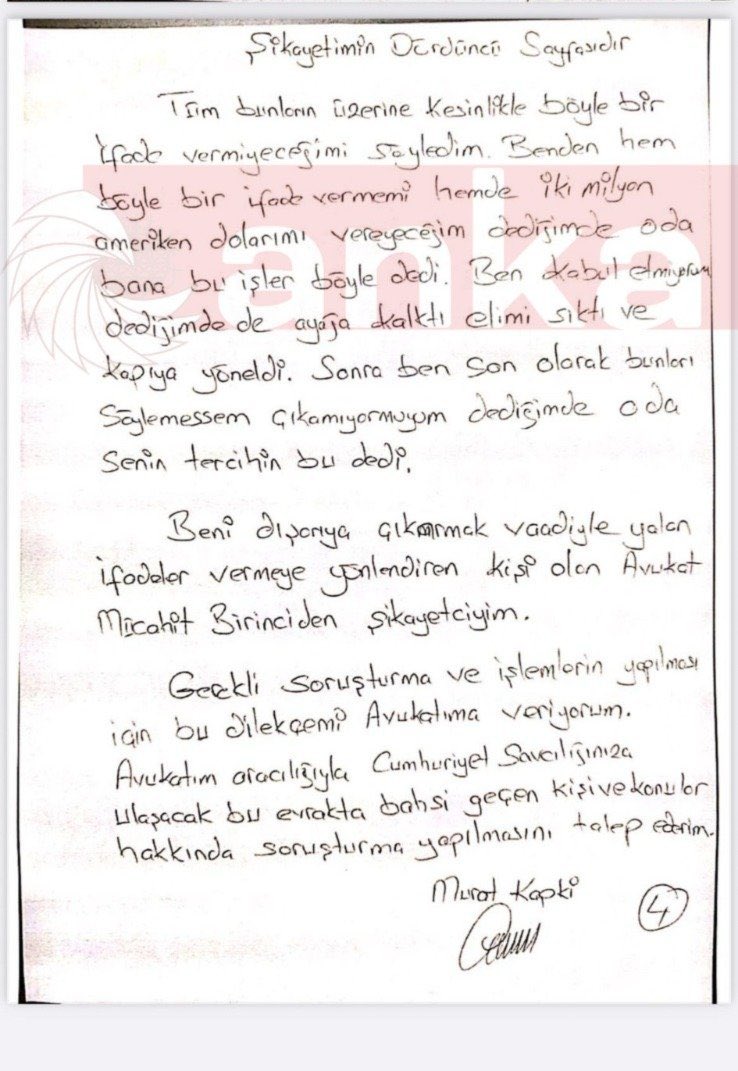 Şikayetimin Dördüncü Sayfasıdır
Tüm bunların üzerine kesinlikle böyle bir
ifade vermiyeceğimi söyledim. Benden hem
böyle bir ifade vermemi hemde iki milyon
ameriken dolarımı vereyeceğim dediğimde oda
bana bu işler böyle dedi. Ben kabul etmiyorum
dediğimde de ayağa kalktı elimi sıktı ve
kapıya yöneldi. Sonra ben son olarak bunları
Söylemessem çıkamıyormuyum dediğimde oda
Senin tercihin bu dedi.
Beni dışarıya çıkarmak vaadiyle yalan
ifadeler vermeye yönlendiren kişi olan Avukat
Mücahit Birinciden şikayetciyim.
Gerekli soruşturma ve işlemlerin yapılması
için bu dilekçemi Avukatıma veriyorum.
Avukatım aracılığıyla Cumhuriyet Savcılığınıza
ulaşacak bu evrakta bahsi geçen kişi ve konular
hakkında soruşturma yapılmasını talep ederim.
Murat Kapki
4
anka